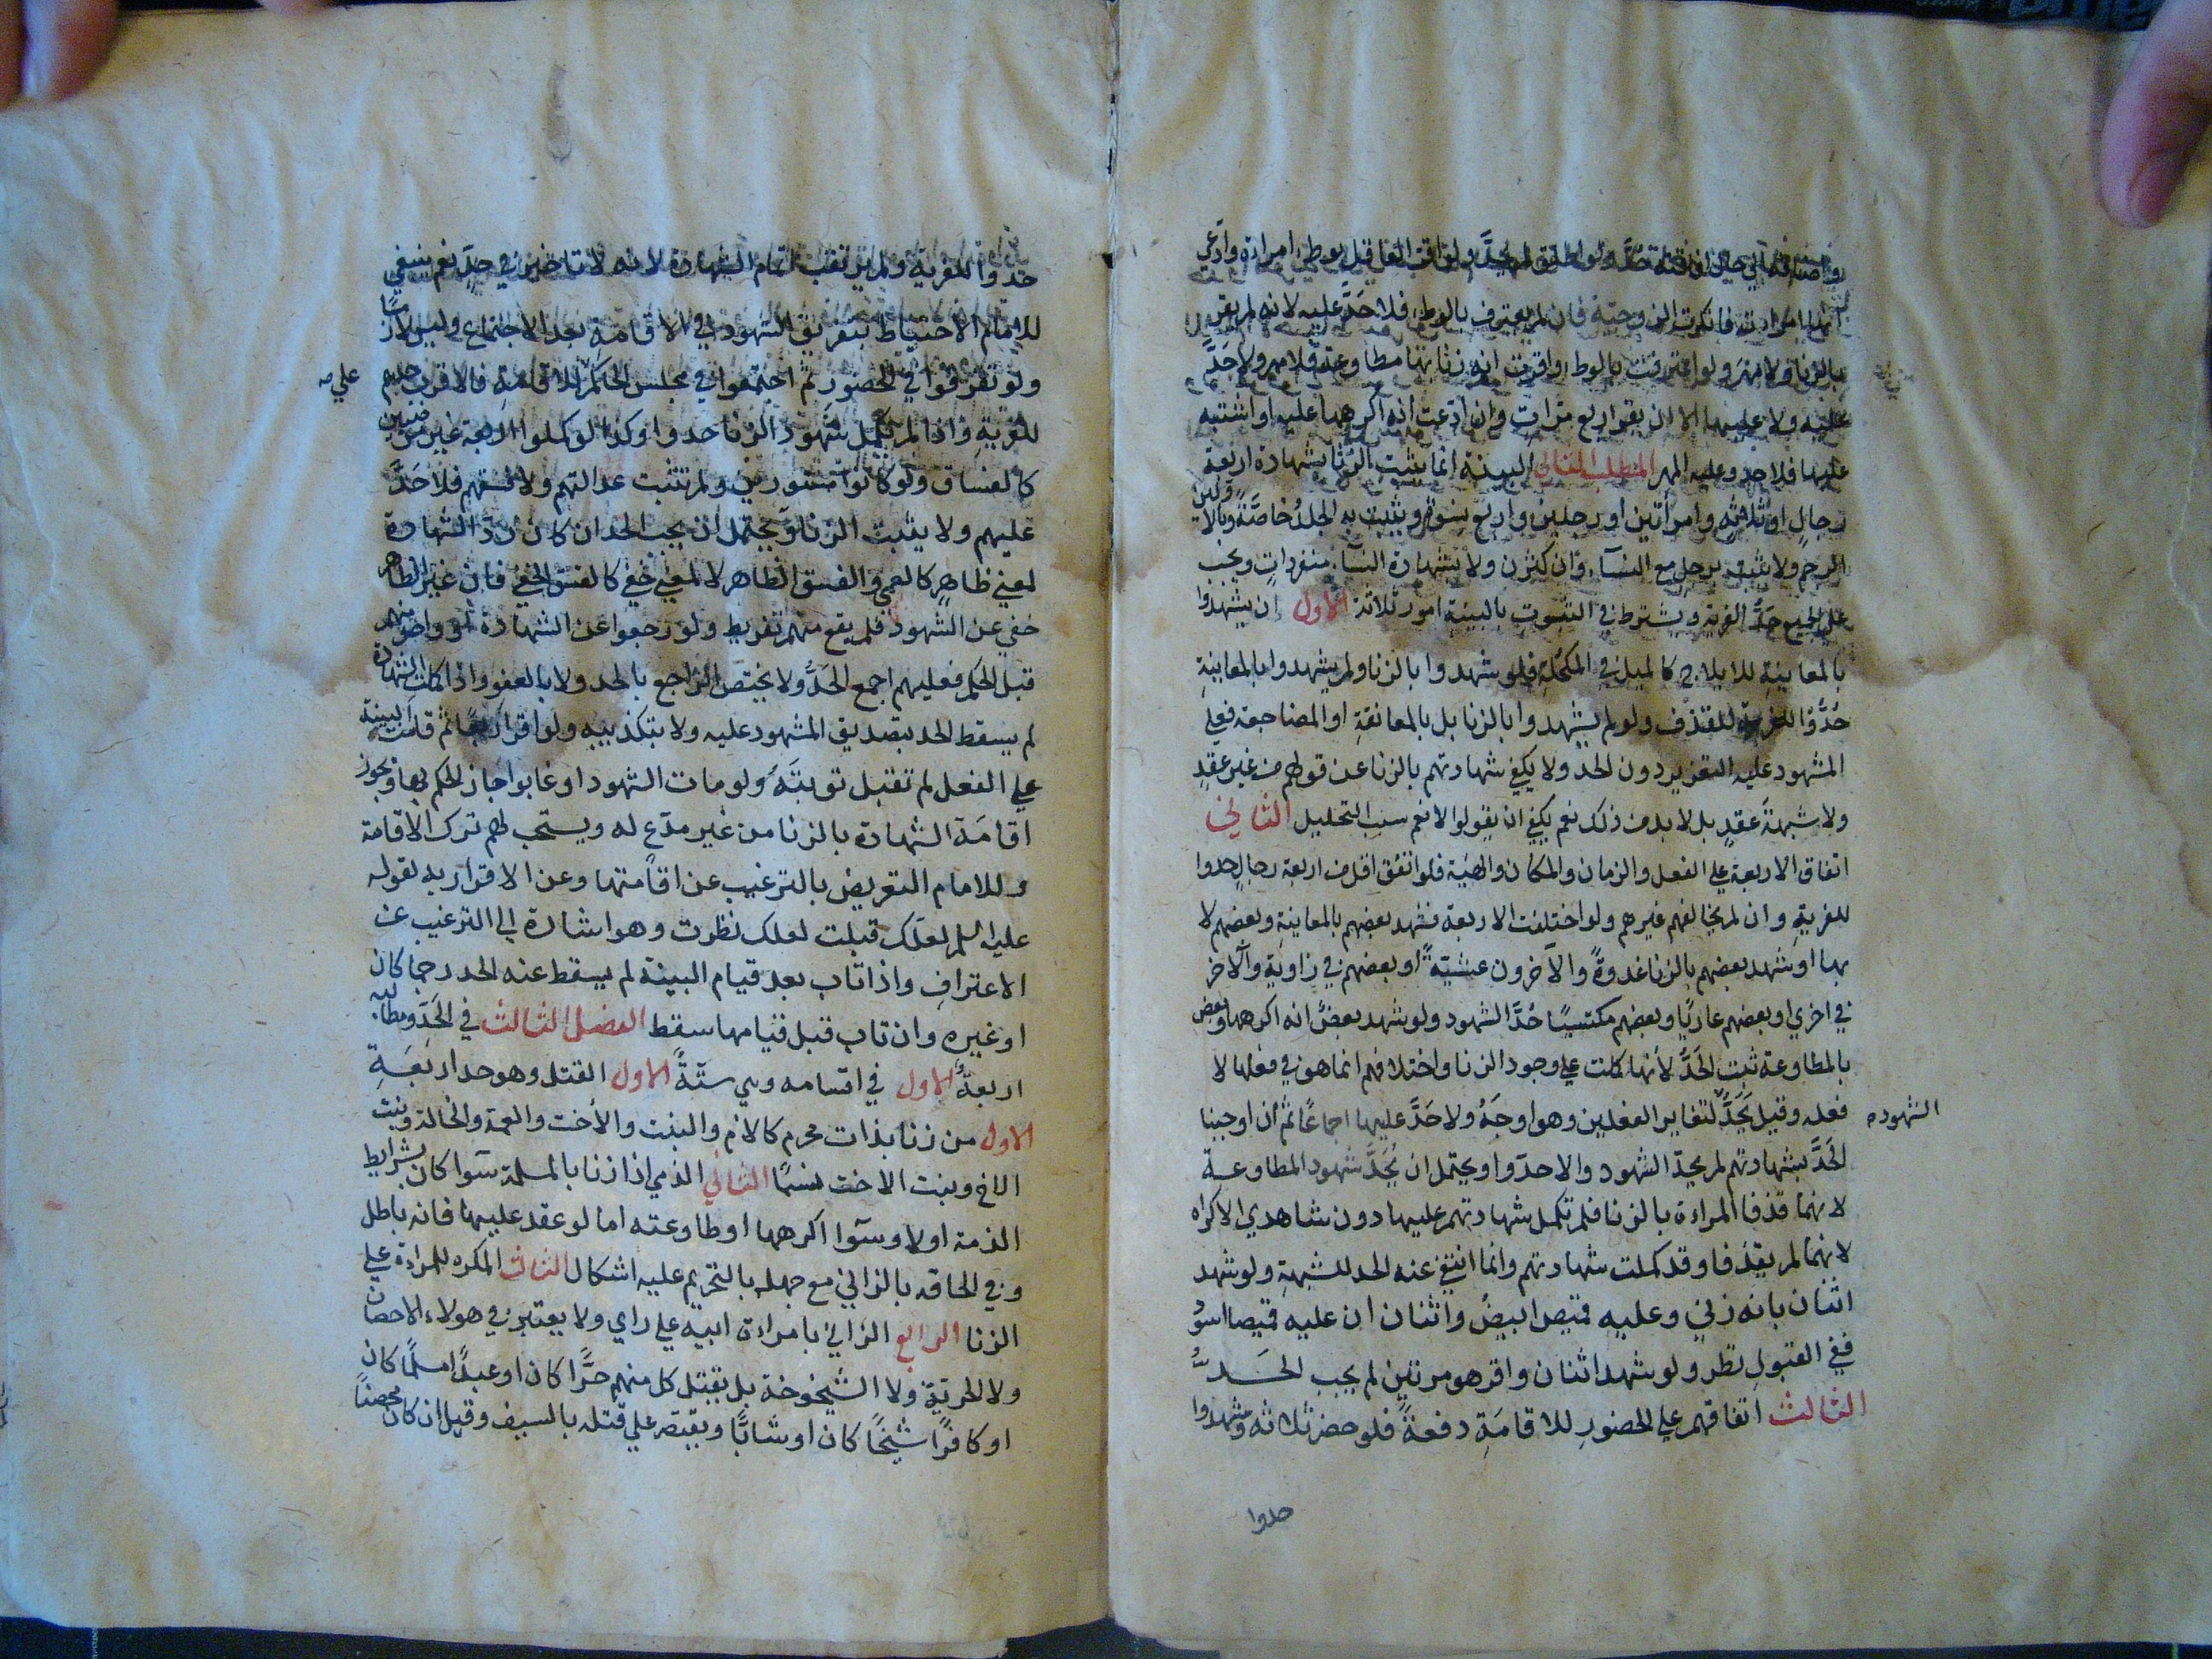 واضافه الي حين افاقته حدّ ولو اطلق لم يحدّ ولو اقر العاقل بوطء امراءة وادعي
انها امراته فانكرت الزوجية فان لم يعترف بالوطء فلا حدّ عليه لانه لم يقر
بالزنا ولا مهر ولو اعترفت بالوطء واقرت انه زنا بها مطاوعة فلا مهر ولا حدّ
عليه ولا عليها الا ان يقر اربع مرات وان ادعت انه اكرهها عليه او اشتبه
عليها فلا حد وعليه المهر المطلب الثاني البينة انما يثبت الزنا بشهادة اربعة
رجال او ثلاثة وامراتين او رجلين واربع نسوة ويثبت به الجلد خاصّة وبالاولين
الرجم ولا يثبت برجل مع النسآء وان كثرن ولا بشهادة النسآء منفردات ويجب
علي الجميع حدّ الفرية ويشترط في الثبوت بالبينة امور ثلاثة الاول ان يشهدوا
بالمعاينة للايلاج كالميل في المكحلة فلو شهدوا بالزنا ولم يشهدوا بالمعاينة
حدّوا للقذف ولو لم يشهدوا بالزنا بل بالمعانقة او المضاجعة فعلي
المشهود عليه التعزير دون الحد ولا يكفي شهادتهم بالزنا عن قولهم من غير عقد
ولا شبهة عقد بل لا بد من ذلك نعم يكفي ان يقولوا لا نعم سبب التحليل الثاني
اتفاق الاربعة علي الفعل والزمان والمكان والهيئة فلو اتفق اقل من اربعة رجال حدوا
للفرية وان لم يخالفهم غيرهم ولو اختلفت الاربعة فشهد بعضهم بالمعاينة وبعضهم لا
بها او شهد بعضهم بالزنا غدوةً والآخرون عشيّة او بعضهم في زاوية والآخر
في اخري او بعضهم عاريًا وبعضهم مكتسيًا حُدّ الشهود ولو شهد بعضٌ انه اكرهها وبعض
بالمطاوعة ثبت الحدّ لأنها كلت علي وجود الزنا واختلافهم انما هو في فعلها لا
فعله وقيل يحدّ لتغاير الفعلين وهو اوجه ولا حدّ عليها اجماعًا ثم ان اوجبنا
الشهود
الحدّ بشهادتهم لم يحدّ الشهود والا حدّوا ويحتمل ان يُحدّ شهود المطاوعة
لانهما قذفا المراءة بالزنا فلم تكمل شهادتهم عليها دون شاهدي الاكراه
لانهما لم يقذفا وقد كملت شهادتهم وانما انتفي عنه الحد للشبهة ولو شهد
اثنان بانه زني وعليه قميص ابيض واثنان ان عليه قميصا اسود
ففي القبول نظر ولو شهد اثنان واقر هو مرتين لم يجب الحدّ
الثالث اتفاقهم علي الحضور للاقامة دفعةً فلو حضر ثلاثه وشهدوا
حدوا
حدوا للفرية ولم يرتقب اتمام الشهادة لانه لا تاخير في حدّ نعم ينبغي
للامام الاحتياط بتفريق الشهود في الاقامة بعد الاجتماع وليس لازمًا
ولو تفرقوا في الحضور ثم اجتمعوا في مجلس الحكم للاقامة فالاقرب حدهم
علي
للفرية واذا لم يكمل شهود الزنا حدوا وكذا لو كملوا الاربعة غير مرضيين
كالفساق ولو كانوا مستورين ولم تثبت عدالتهم ولا فسقهم فلا حدّ
عليهم ولا يثبت الزنا ويحتمل ان يجب الحد ان كان ردّ الشهادة
لمعني ظاهر كالعمي والفسق الظاهر لا لمعني خفي كالفسق الخفي فان غير الظاهر
خفي عن الشهود فلم يقع منهم تفريط ولو رجعوا عن الشهادة او واحد منهم
قبل الحكم فعليهم اجمع الحدّ ولا يختص الراجع بالحد ولا بالعفو واذا كملت الشهادة
لم يسقط الحد بتصديق المشهود عليه ولا بتكذيبه ولو اقر اربعًا ثم قامت البينة
علي الفعل لم تقبل توبته ولو مات الشهود او غابوا جاز الحكم بها ويجوز
اقامة الشهادة بالزنا من غير مدّع له ويستحب لهم ترك الاقامة
وللامام التعريض بالترغيب عن اقامتها وعن الاقرار به لقوله
عليه السلم لعلّك قبلت لعلك نظرت وهو اشارة الي الترغيب عن
الاعتراف واذا تاب بعد قيام البينة لم يسقط عنه الحد رجما كان
او غيره وان تاب قبل قيامها سقط الفصل الثالث في الحدّ ومطالبه
اربعةٌ الاول في اقسامه وهي ستّةٌ الاول القتل وهو حد اربعة
الاول من زنا بذات محرم كالام والبنت والأخت والعمة والخالة وبنت
الاخ وبنت الاخت نسبًا الثاني الذمي اذا زنا بالمسلمة سوا كان بشرايط
الذمة اولا وسوآ اكرهها او طاوعته اما لو عقد عليها فانه باطل
وفي الحاقه بالزاني مع جهله بالتحريم عليه اشكال الثالث المكره للمراءة علي
الزنا الرابع الزاني بامراءة ابيه علي راي ولا يعتبر في هولاء الاحصان
ولا الحرية ولا الشيخوخة بل يقتل كل منهم حرًّا كان او عبدًا مسلمًا كان
او كافرًا شيخًا كان او شابًّا ويقتصر علي قتله بالسيف وقيل ان كان محصنًا